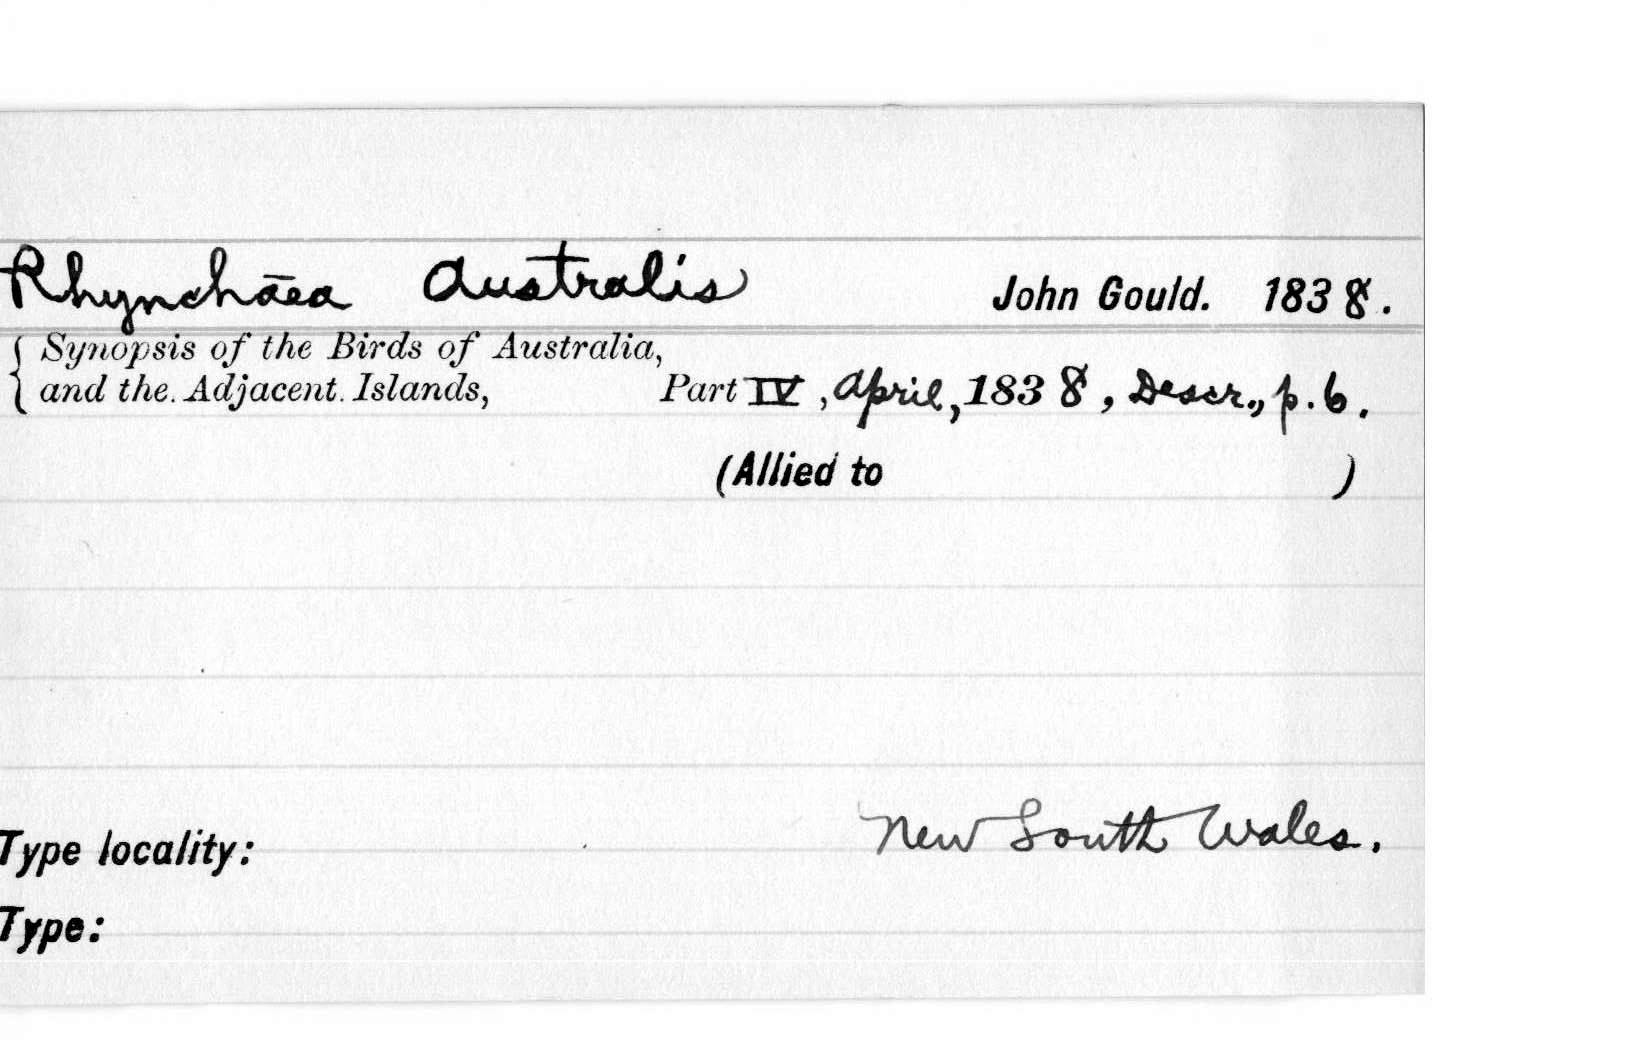 Rhynchāea Australis John Gould. 1838.
Synopsis of the Birds of Australia,
and the Adjacent Islands, Part IV, April, 1838, Descr., p. 6.
(Allied to )
New South Wales.
Type locality:
Type: